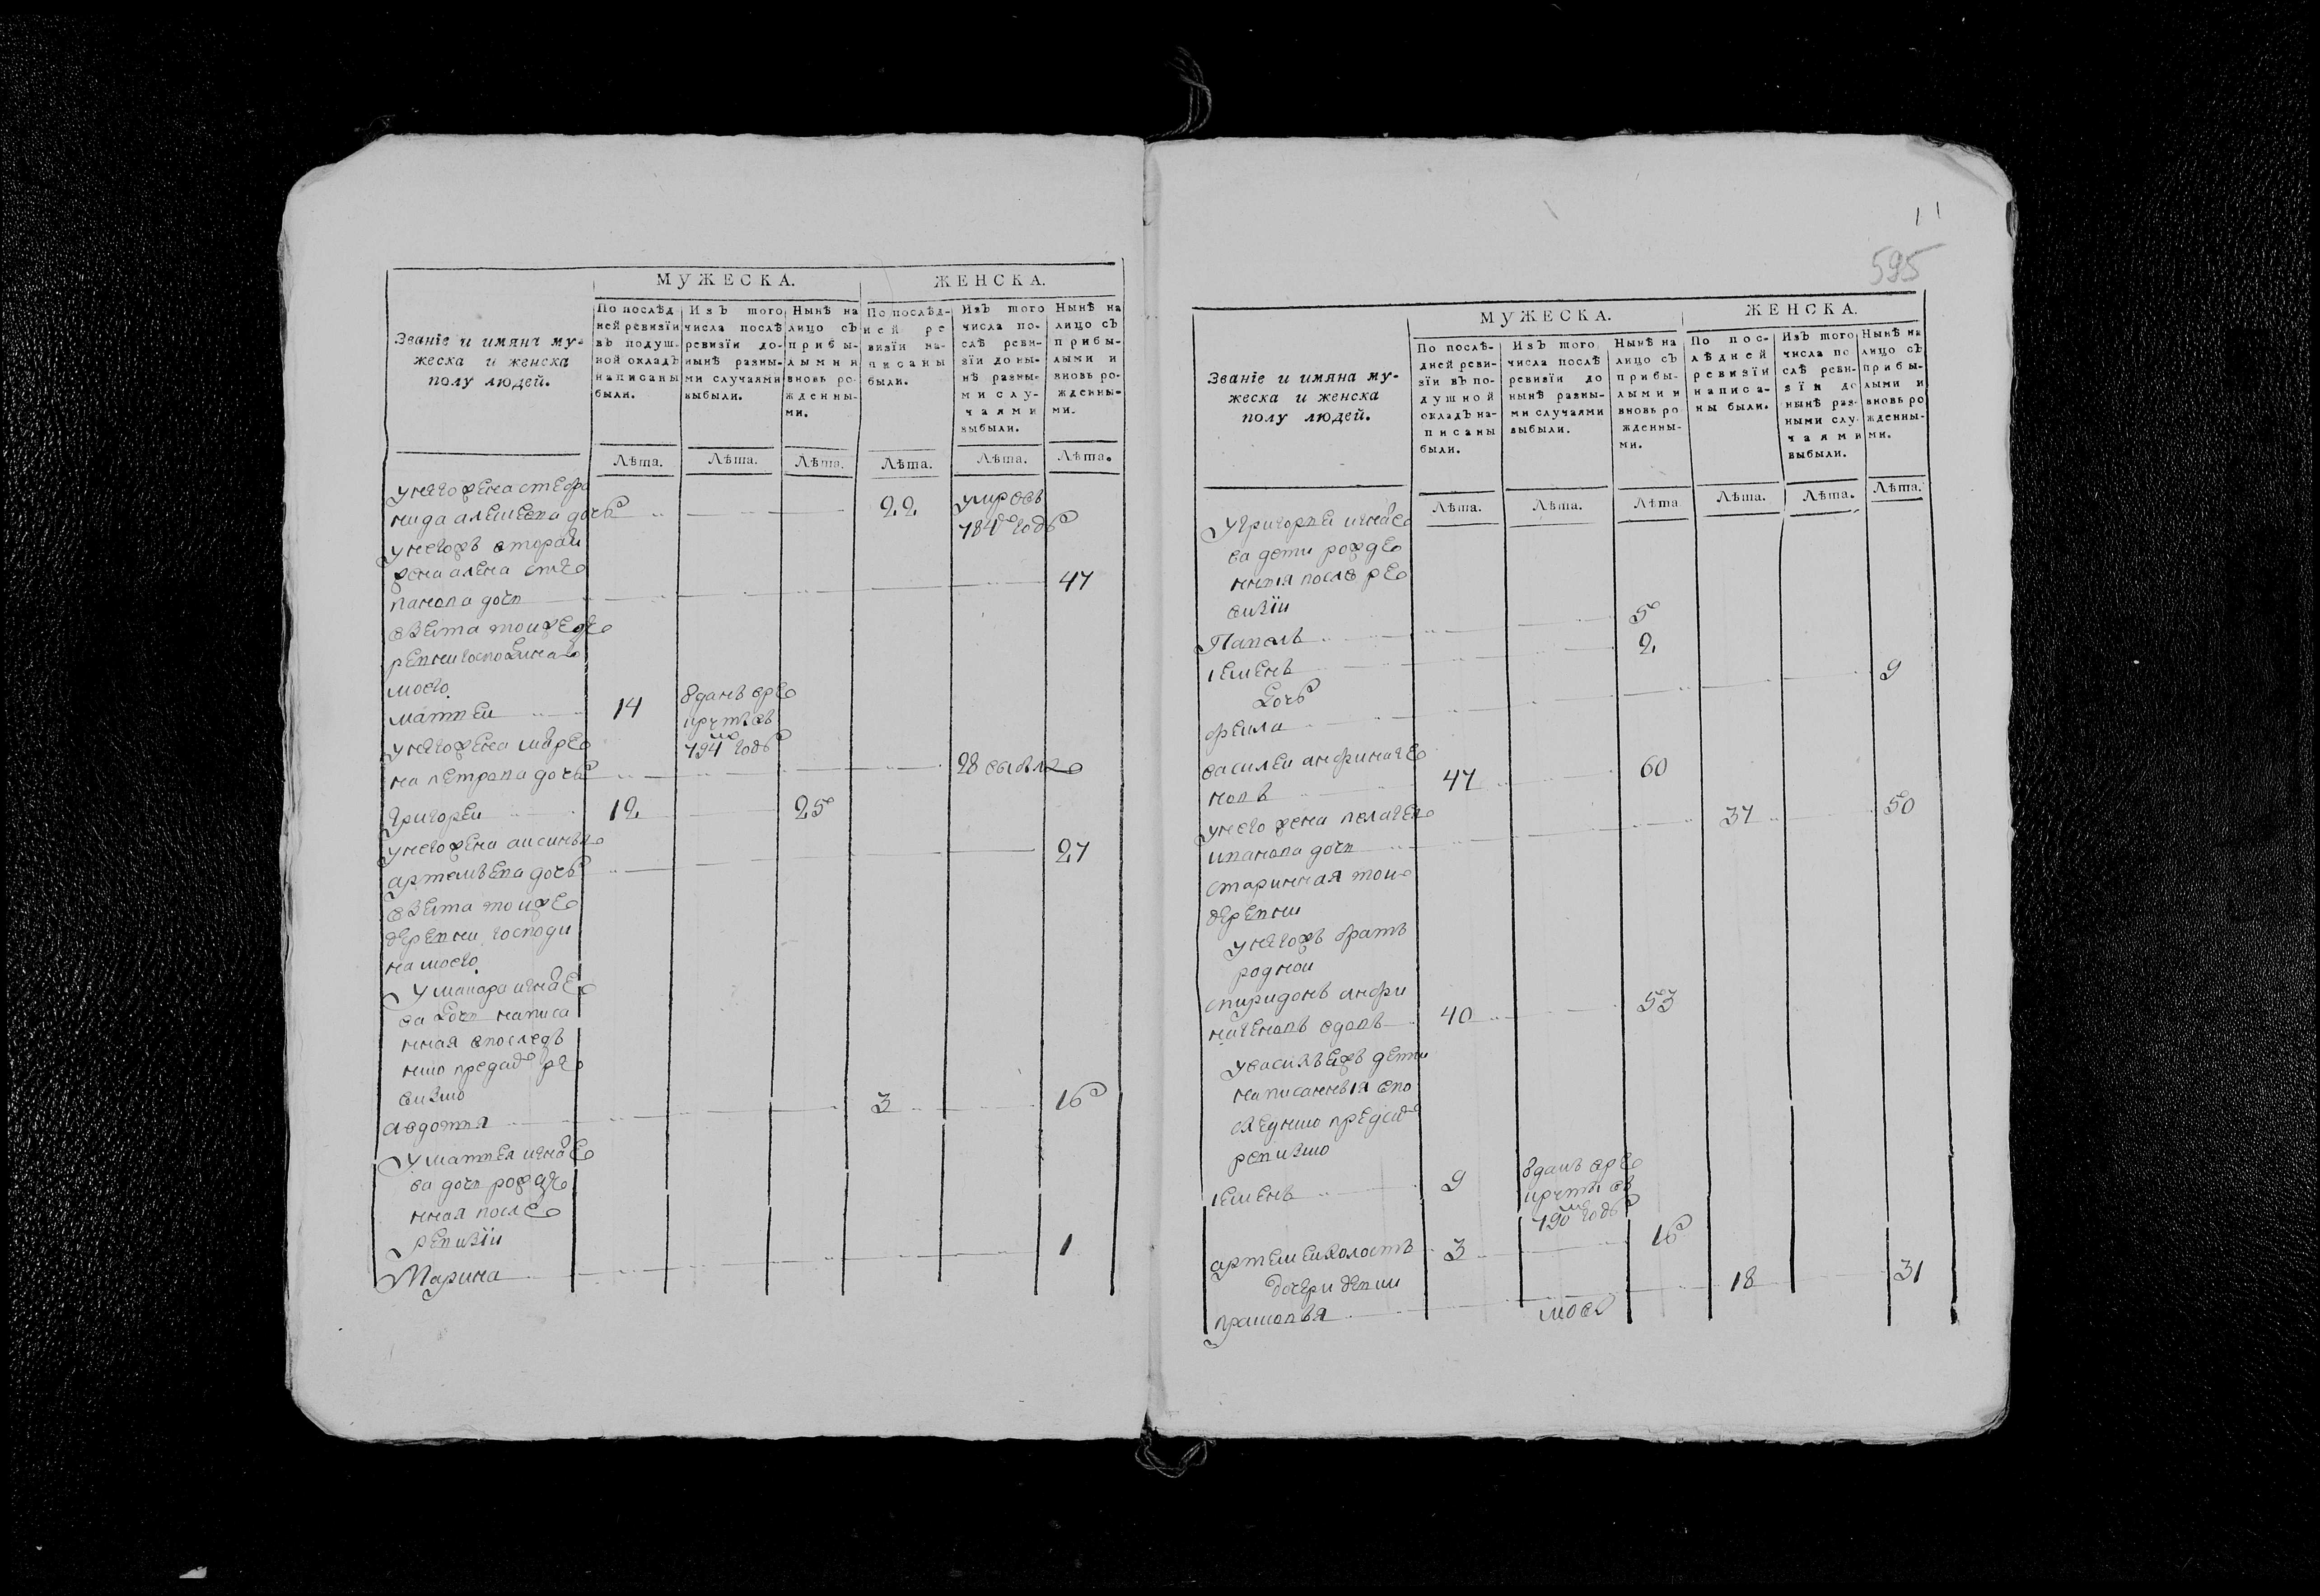 Званіе и имяна му-
жеска и женска
полу людей.
МУЖЕСКА.
ЖЕНСКА.
По послѣд
ней ревизїи
въ подуш-
ной окладъ
написаны
были.
Изъ того
числа послѣ
ревизїи до-
нынѣ разны-
ми случаями
выбыли.
Нынѣ на
лицо съ
прибы-
лыми и
вновь ро-
жденны-
ми.
По послѣд-
ней ре
визїи на-
писаны
были.
Изъ того
числа по-
слѣ реви-
зїи до ны-
нѣ разны-
ми слу-
чаями
выбыли.
Нынѣ на
лицо съ
прибы-
лыми и
вновь ро-
жденны-
ми.
Лѣта. Лѣта. Лѣта. Лѣта. Лѣта. Лѣта.
у него жена стефа
нида алешева дочь 22 умре въ
784 годѣ
у негожъ вторая
жена алена сте
панова дочь 47
взята тоиже де
ревни господина
моего
матвеи 14 зданъ вре
круты въ
794 годѣ
у него жена маре
на петрова дочь 28 выбыла
григореи 12 25
у него жена аксинья
артемьева дочь 27
взята тоиже
деревни господи
на моего
у макара игнае
ва дочь написа
нная впоследь
нию пред сию ре
визию
авдотья 3 16
у матвея игнае
ва дочь рожде
нная после
ревизїи
Марина 1
11
595
Званіе и имяна му-
жеска и женска
полу людей.
МУЖЕСКА.
ЖЕНСКА.
По послѣ-
дней реви-
зїи въ по-
душной
окладъ на-
писаны
были.
Изъ того
числа послѣ
ревизїи до
нынѣ разны-
ми случаями
выбыли.
Нынѣ на
лицо съ
прибы-
лыми и
вновь ро
жденны-
ми.
По пос-
лѣдней
ревизїи
написа-
ны были.
Изъ того
числа по
слѣ реви-
зїи до
нынѣ раз-
ными слу-
чаями
выбыли.
Нынѣ на
лицо съ
прибы-
лыми и
вновь ро
жденны-
ми.
Лѣта. Лѣта. Лѣта Лѣта. Лѣта. Лѣта.
у григорьи игнае
ва дети рожде
нныя после ре
визїи
Павелъ 5
семенъ 2
дочь
фекла 9
василеи анфиноге
новъ 47 60
у него жена пелагея
иванова дочь 37 50
старинная тои
деревни
у негожъ братъ
роднои
спиридонъ анфи
ногеновъ вдовъ 40 53
у василья жъ дети
написанныя впо
следнию пред сию
ревизию
семенъ 9 зданъ вре
круты въ
790 годѣ
артемеи холостъ 3 16
дочери девки
прасковья 18 31
моео